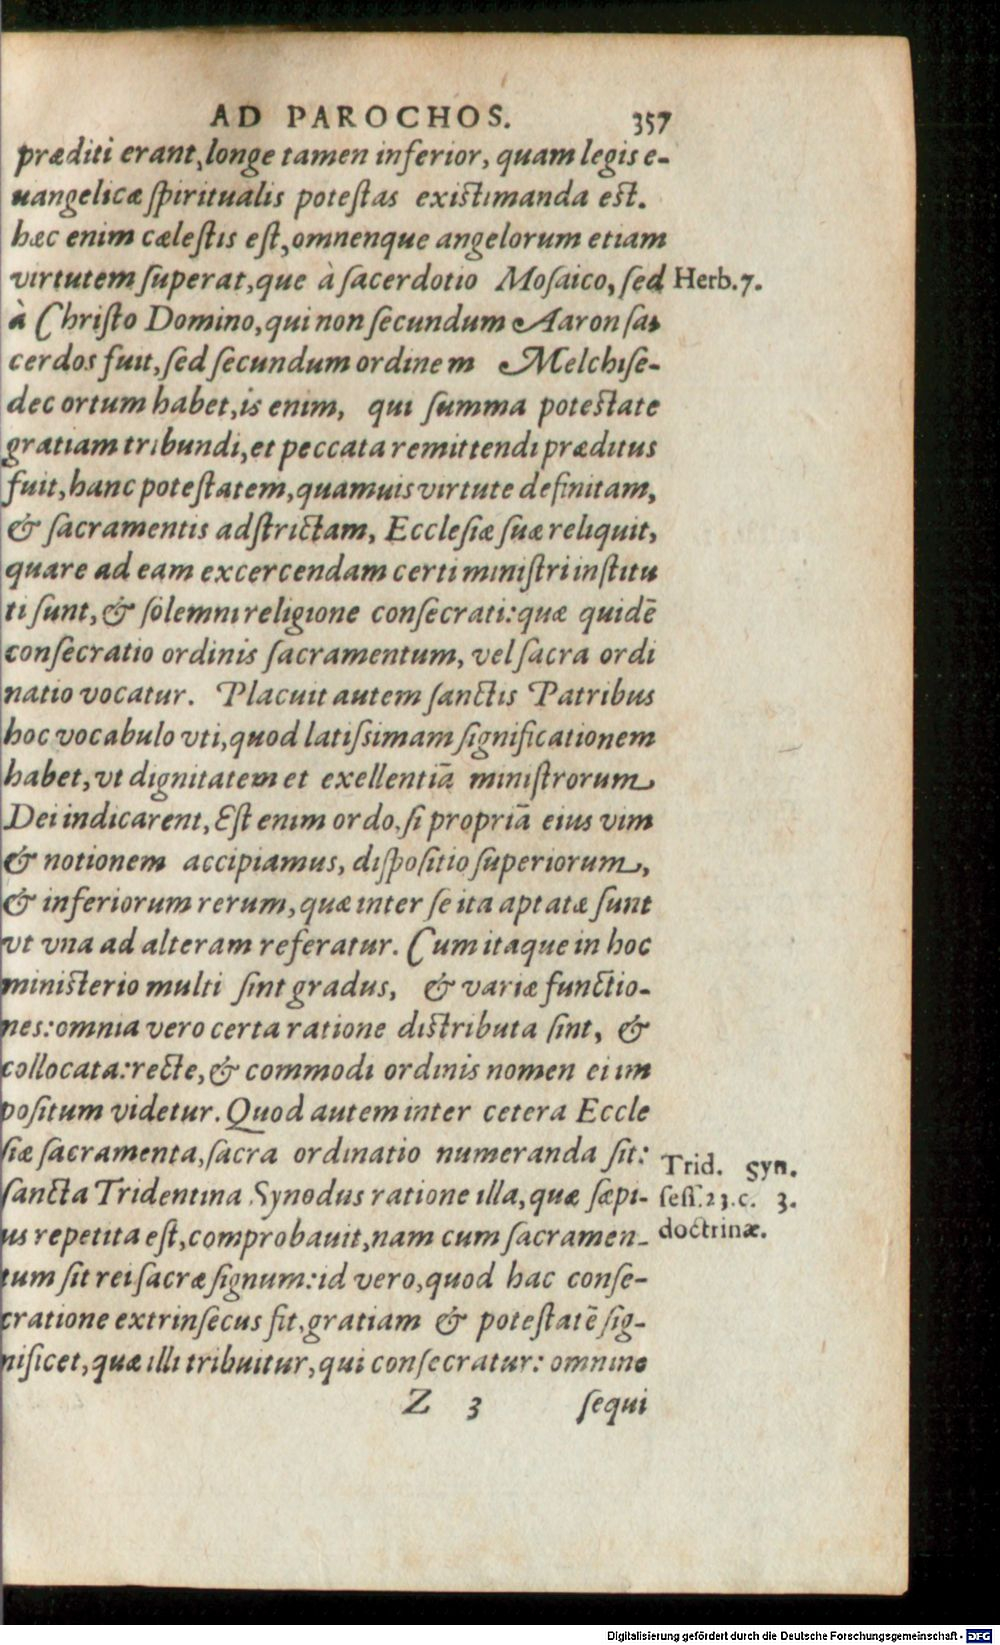 AD PAROCHOS. 357
præditi erant, longe tamen inferior, quam legis e-
uangelicæ ſpiritualis poteſtas exiſtimanda eſt.
hæc enim cæleſtis eſt, omnenque angelorum etiam
virtutem ſuperat, que à ſacerdotio Moſaico, ſed
Herb.7.
à Chriſto Domino, qui non ſecundum Aaron ſa-
cerdos fuit, ſed ſecundum ordinem Melchiſe-
dec ortum habet, is enim, qui ſumma poteſtate
gratiam tribundi, et peccata remittendi præditus
fuit, hanc poteſtatem, quamuis virtute definitam,
& ſacramentis adſtrictam, Eccleſiæ ſuæ reliquit,
quare ad eam excercendam certi miniſtri inſtitu
ti ſunt, & ſolemni religione conſecrati: quæ quidē
conſecratio ordinis ſacramentum, vel ſacra ordi
natio vocatur. Placuit autem ſanctis Patribus
hoc vocabulo vti, quod latiſsimam ſignificationem
habet, vt dignitatem et exellentiā miniſtrorum
Dei indicarent, Eſt enim ordo, ſi propriā eius vim
& notionem accipiamus, diſpoſitio ſuperiorum,
& inferiorum rerum, quæ inter ſe ita aptatæ ſunt
vt vna ad alteram referatur. Cum itaque in hoc
miniſterio multi ſint gradus, & variæ functio-
nes: omnia vero certa ratione diſtributa ſint, &
collocata: recte, & commodi ordinis nomen ei im
poſitum videtur. Quod autem inter cetera Eccle
ſiæ ſacramenta, ſacra ordinatio numeranda ſit:
Trid. Syn.
ſancta Tridentina Synodus ratione illa, quæ ſæpi-
ſeſſ.23.c. 3.
us repetita eſt, comprobauit, nam cum ſacramen-
doctrinæ.
tum ſit rei ſacræ ſignum: id vero, quod hac conſe-
cratione extrinſecus fit, gratiam & poteſtatē ſig-
nificet, quæ illi tribuitur, qui conſecratur: omnino
Z 3 ſequi
Digitalisierung gefördert durch die Deutsche Forschungsgemeinschaft - DFG